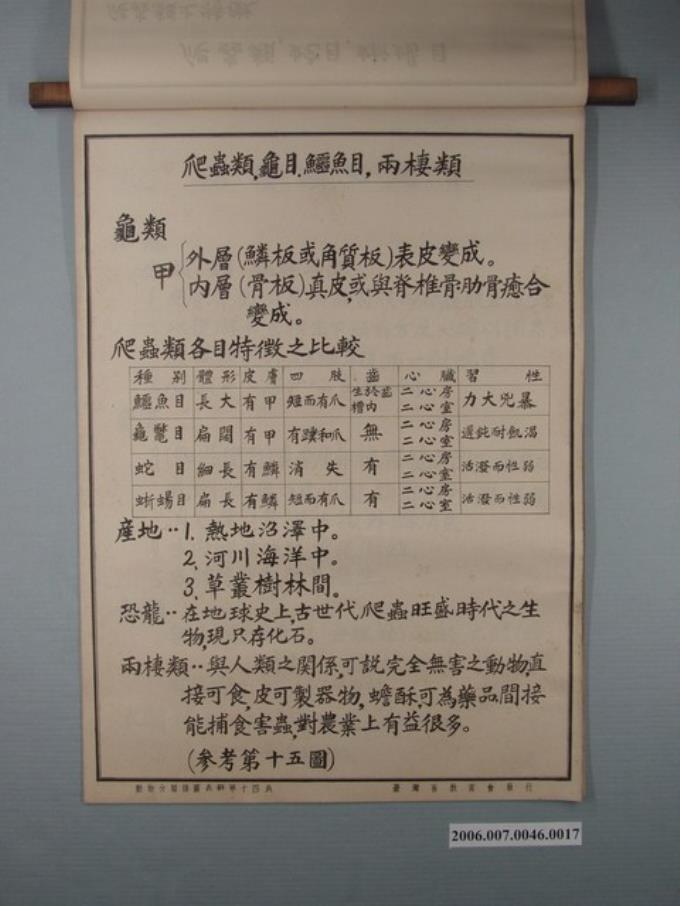 爬蟲類,龜目.鱷魚目,兩棲類
龜類
甲
外層(鱗板或角質板)表皮變成。
內層(骨板)真皮,或與脊椎骨肋骨癒合
變成。
爬蟲類各目特徵之比較
種別 體形 皮膚 四肢 齒 心臟 習性
鱷魚目 長大 有甲 短而有爪 生於齒槽內 二心房二心室 力大兇暴
龜鼈目 扁闊 有甲 有蹼和爪 無 二心房二心室 遲鈍耐飢渴
蛇目 細長 有鱗 消失 有 二心房二心室 活潑而性弱
蜥蜴目 扁長 有鱗 短而有爪 有 二心房二心室 活潑而性弱
產地‥1.熱地沼澤中。
2.河川海洋中。
3.草叢樹林間。
恐龍‥在地球史上,古世代爬蟲旺盛時代之生
物,現只存化石。
兩棲類‥與人類之關係,可說完全無害之動物,直
接可食,皮可製器物,蟾酥可為藥品間接
能捕食害蟲,對農業上有益很多。
(參考第十五圖)
臺灣省教育會發行
2006.007.0046.0017